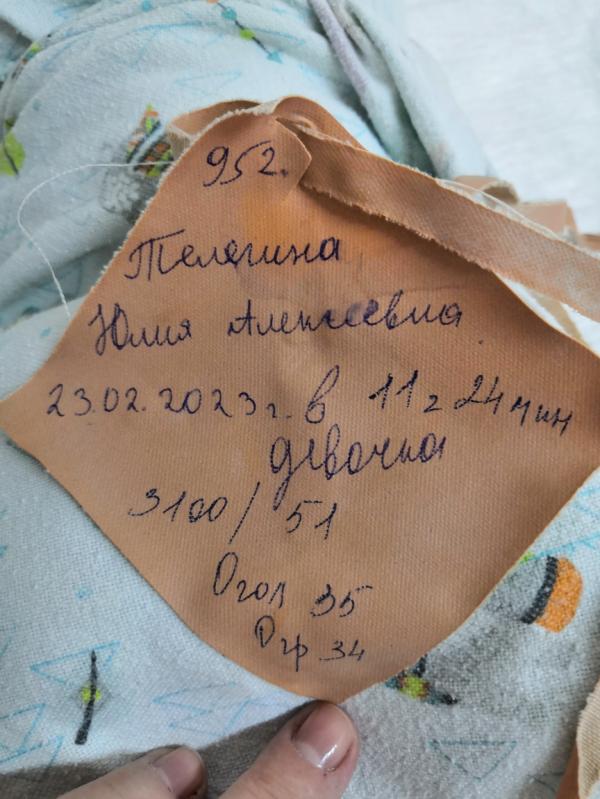 952.
Телягина
Юлия Алексеевна
23.02.2023г. в 11 г 24 мин
девочка
3100/51
Огол 35
Огр 34